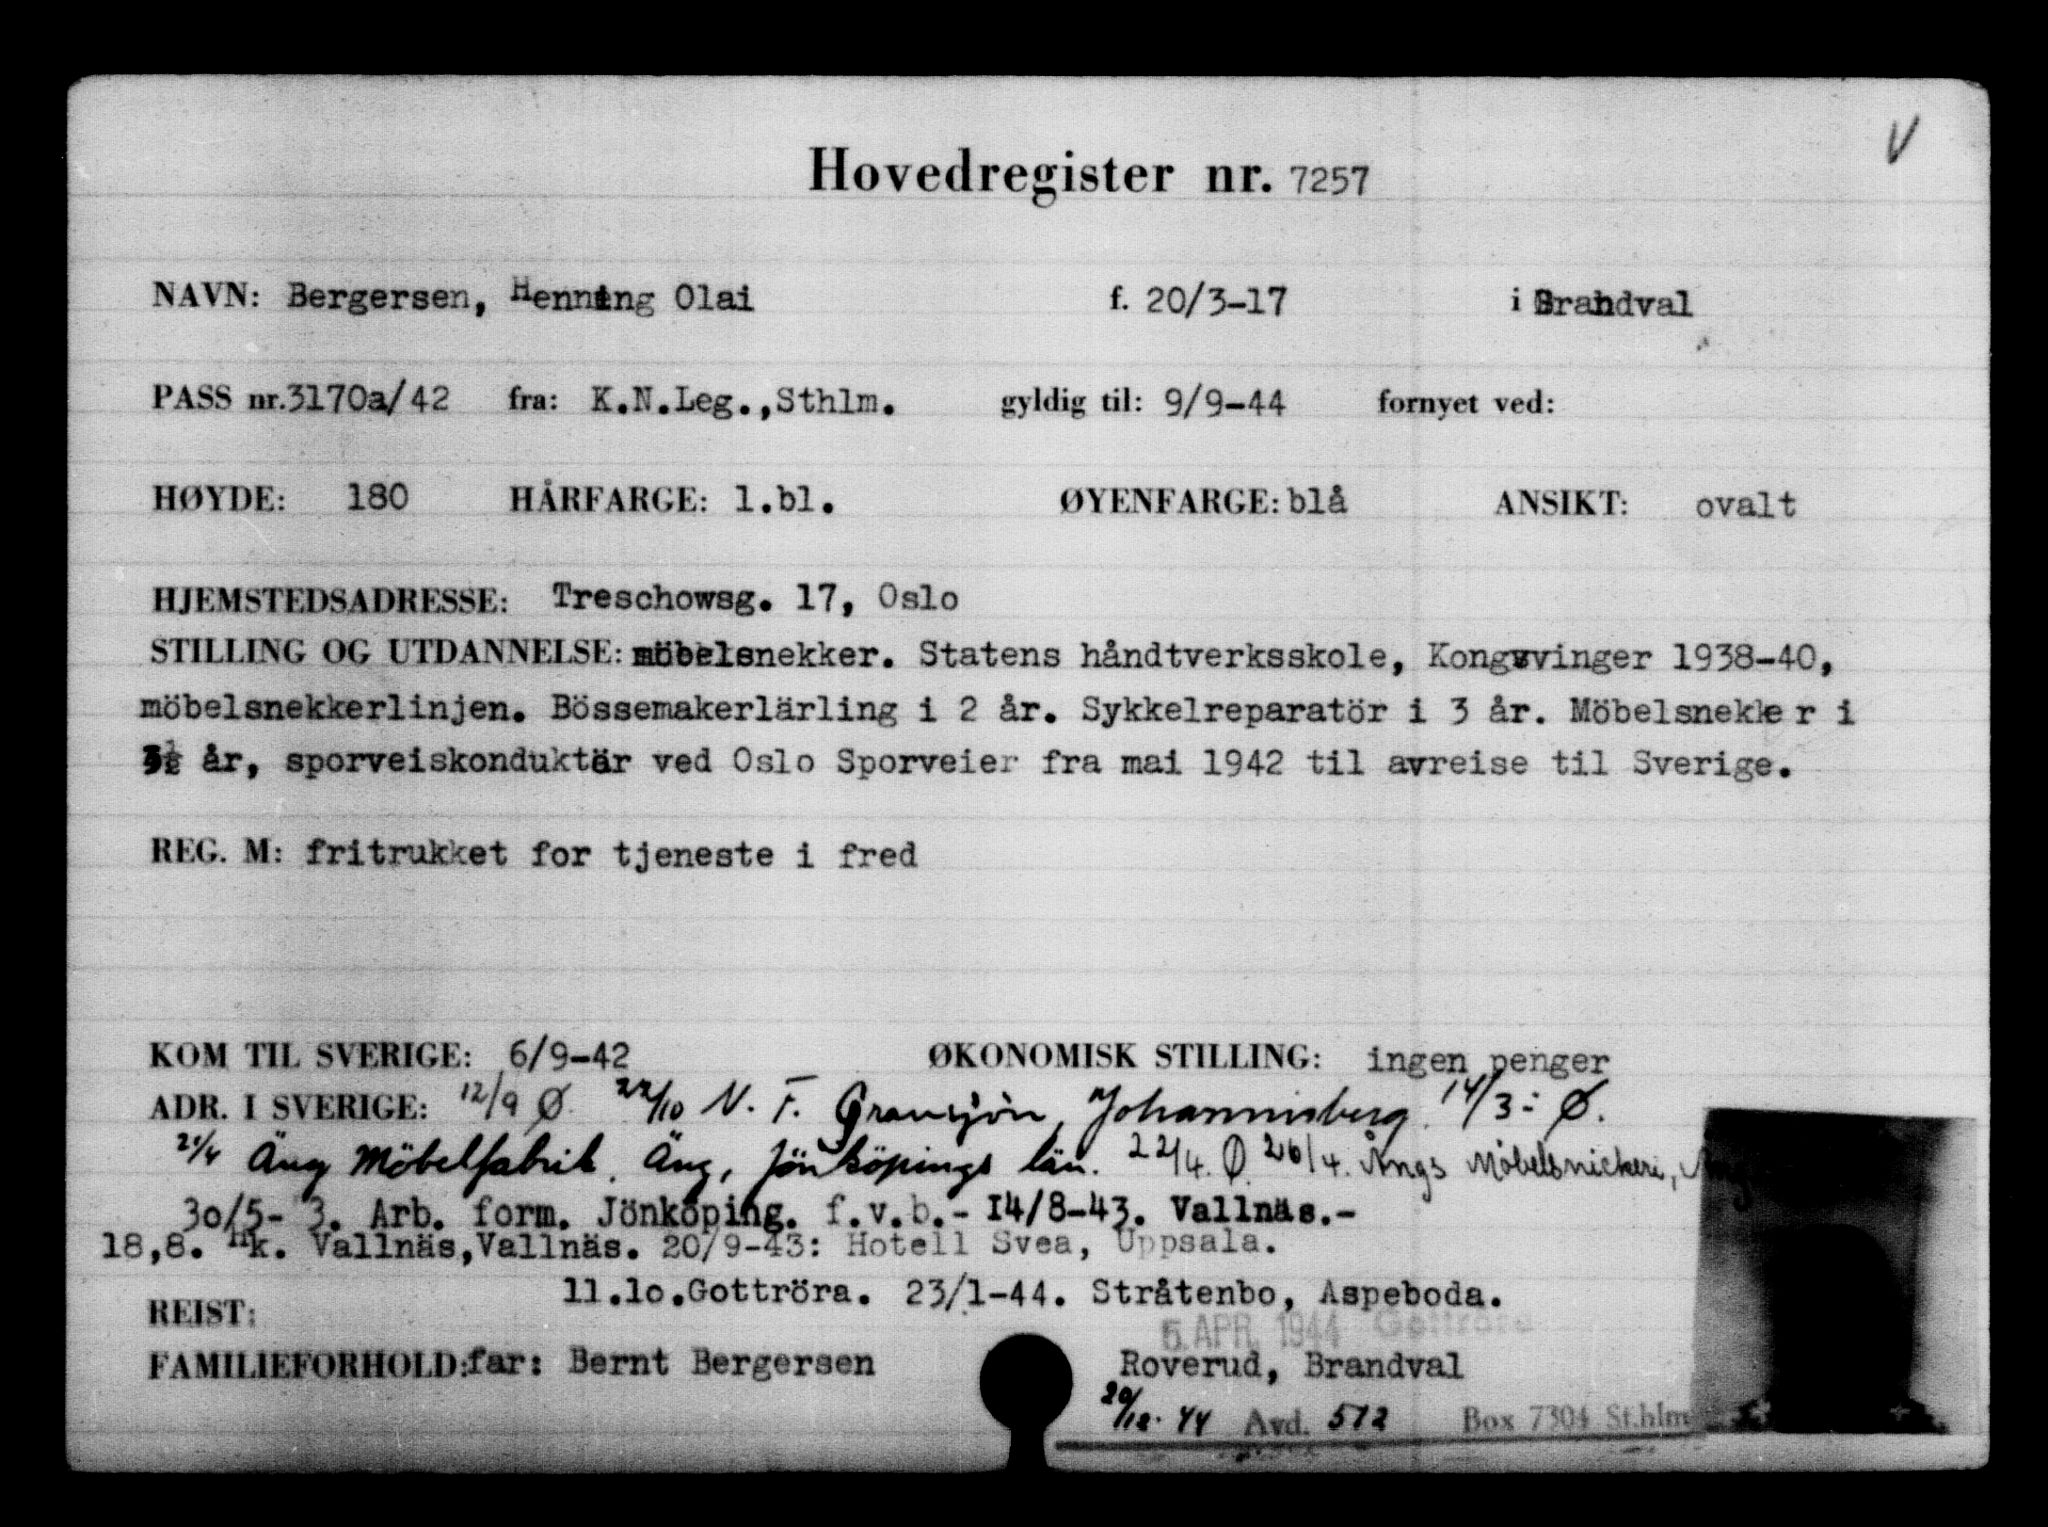 V
Hovedregister nr. 7257
NAVN: Bergersen, Henning Olai f. 20/3-17 i Brandval
PASS nr. 3170a/42 fra: K.N.Leg.,Sthlm. gyldig til: 9/9-44 fornyet ved:
HØYDE: 180 HÅRFARGE: l.bl. ØYENFARGE: blå ANSIKT: ovalt
HJEMSTEDSADRESSE: Treschowsg. 17, Oslo
STILLING OG UTDANNELSE: möbelsnekker. Statens håndtverksskole, Kongsvinger 1938-40,
möbelsnekkerlinjen. Bössemakerlärling i 2 år. Sykkelreparatör i 3 år. Möbelsnekker i
3½ år, sporveiskonduktör ved Oslo Sporveier fra mai 1942 til avreise til Sverige.
REG. M: fritrukket for tjeneste i fred
KOM TIL SVERIGE: 6/9-42 ØKONOMISK STILLING: ingen penger
ADR. I SVERIGE: 12/9 Ø. 22/10 N. F. Gransjön, Johannisberg. 14/3: Ø.
Äng Möbelfabrik, Äng, Jönköpings län. 22/4. Ø. 26/4. Ängs Möbelsnickeri, Äng
30/5- 3. Arb. form. Jönköping. f.v.b.- 14/8-43. Vallnäs.-
18,8. Hk. Vallnäs,Vallnäs. 20/9-43: Hotell Svea, Uppsala.
11.10.Gottröra. 23/1-44. Stråtenbo, Aspeboda.
REIST:
5. APR. 1944 Gottröra
FAMILIEFORHOLD: far: Bernt Bergersen Roverud, Brandval
20/12. 44 Avd. 512 Box 7304 St.hlm